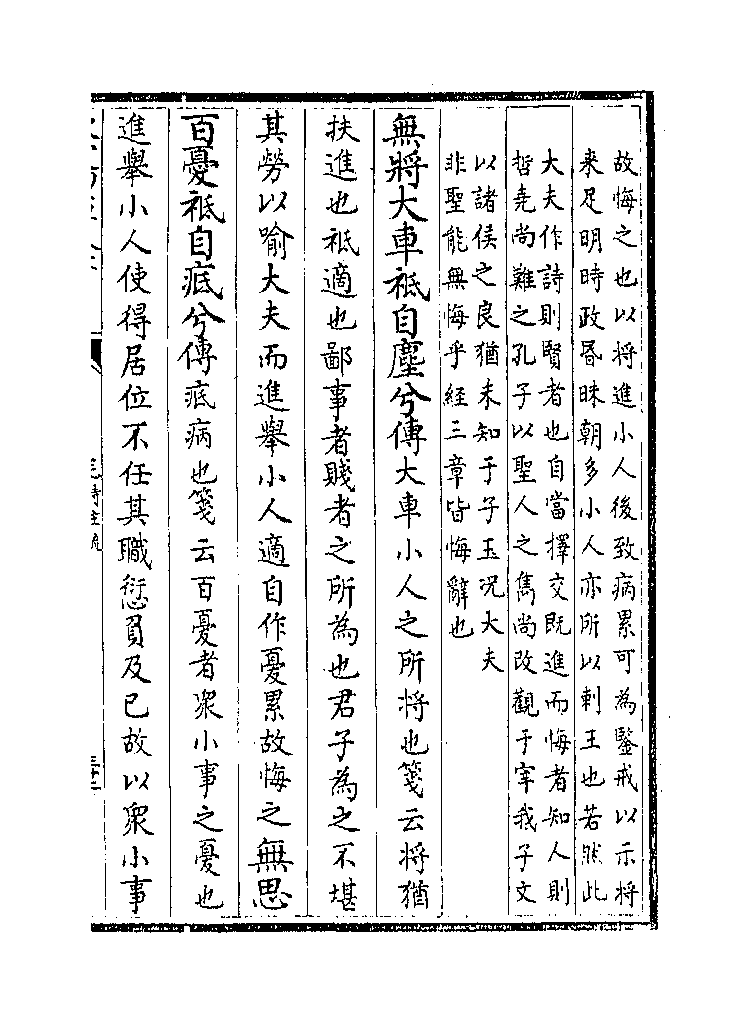 故悔之也以将進小人後致病累可為鑒戒以示将
来足明時政昬昧朝多小人亦所以刺王也若然此
大夫作詩則賢者也自當擇交既進而悔者知人則
哲堯尚難之孔子以聖人之雋尚改觀于宰我子文
以諸侯之良猶未知于子玉况大夫
非聖能無悔乎經三章皆悔辭也
無將大車祗自塵兮傳大車小人之所将也箋云将猶
扶進也祗適也鄙事者賤者之所為也君子為之不堪
其勞以喻大夫而進舉小人適自作憂累故悔之無思
百憂祗自疧兮傳疧病也箋云百憂者衆小事之憂也
進舉小人使得居位不任其職愆負及已故以衆小事
毛詩注疏